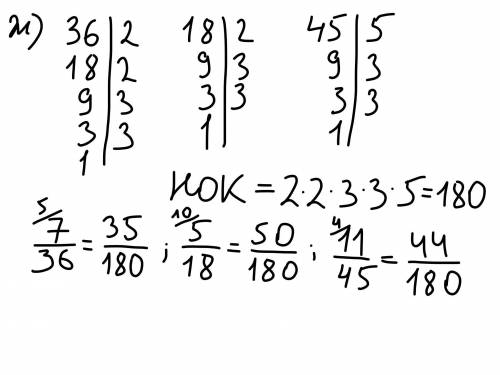 ж) 36 | 2 18 | 2 45 | 5
18 | 2 9 | 3 9 | 3
9 | 3 3 | 3 3 | 3
3 | 3 1 | 1 |
1 |
НОК = 2·2·3·3·5=180
5/ 7/36 = 35/180 ; 10/ 5/18 = 50/180 ; 4/ 11/45 = 44/180